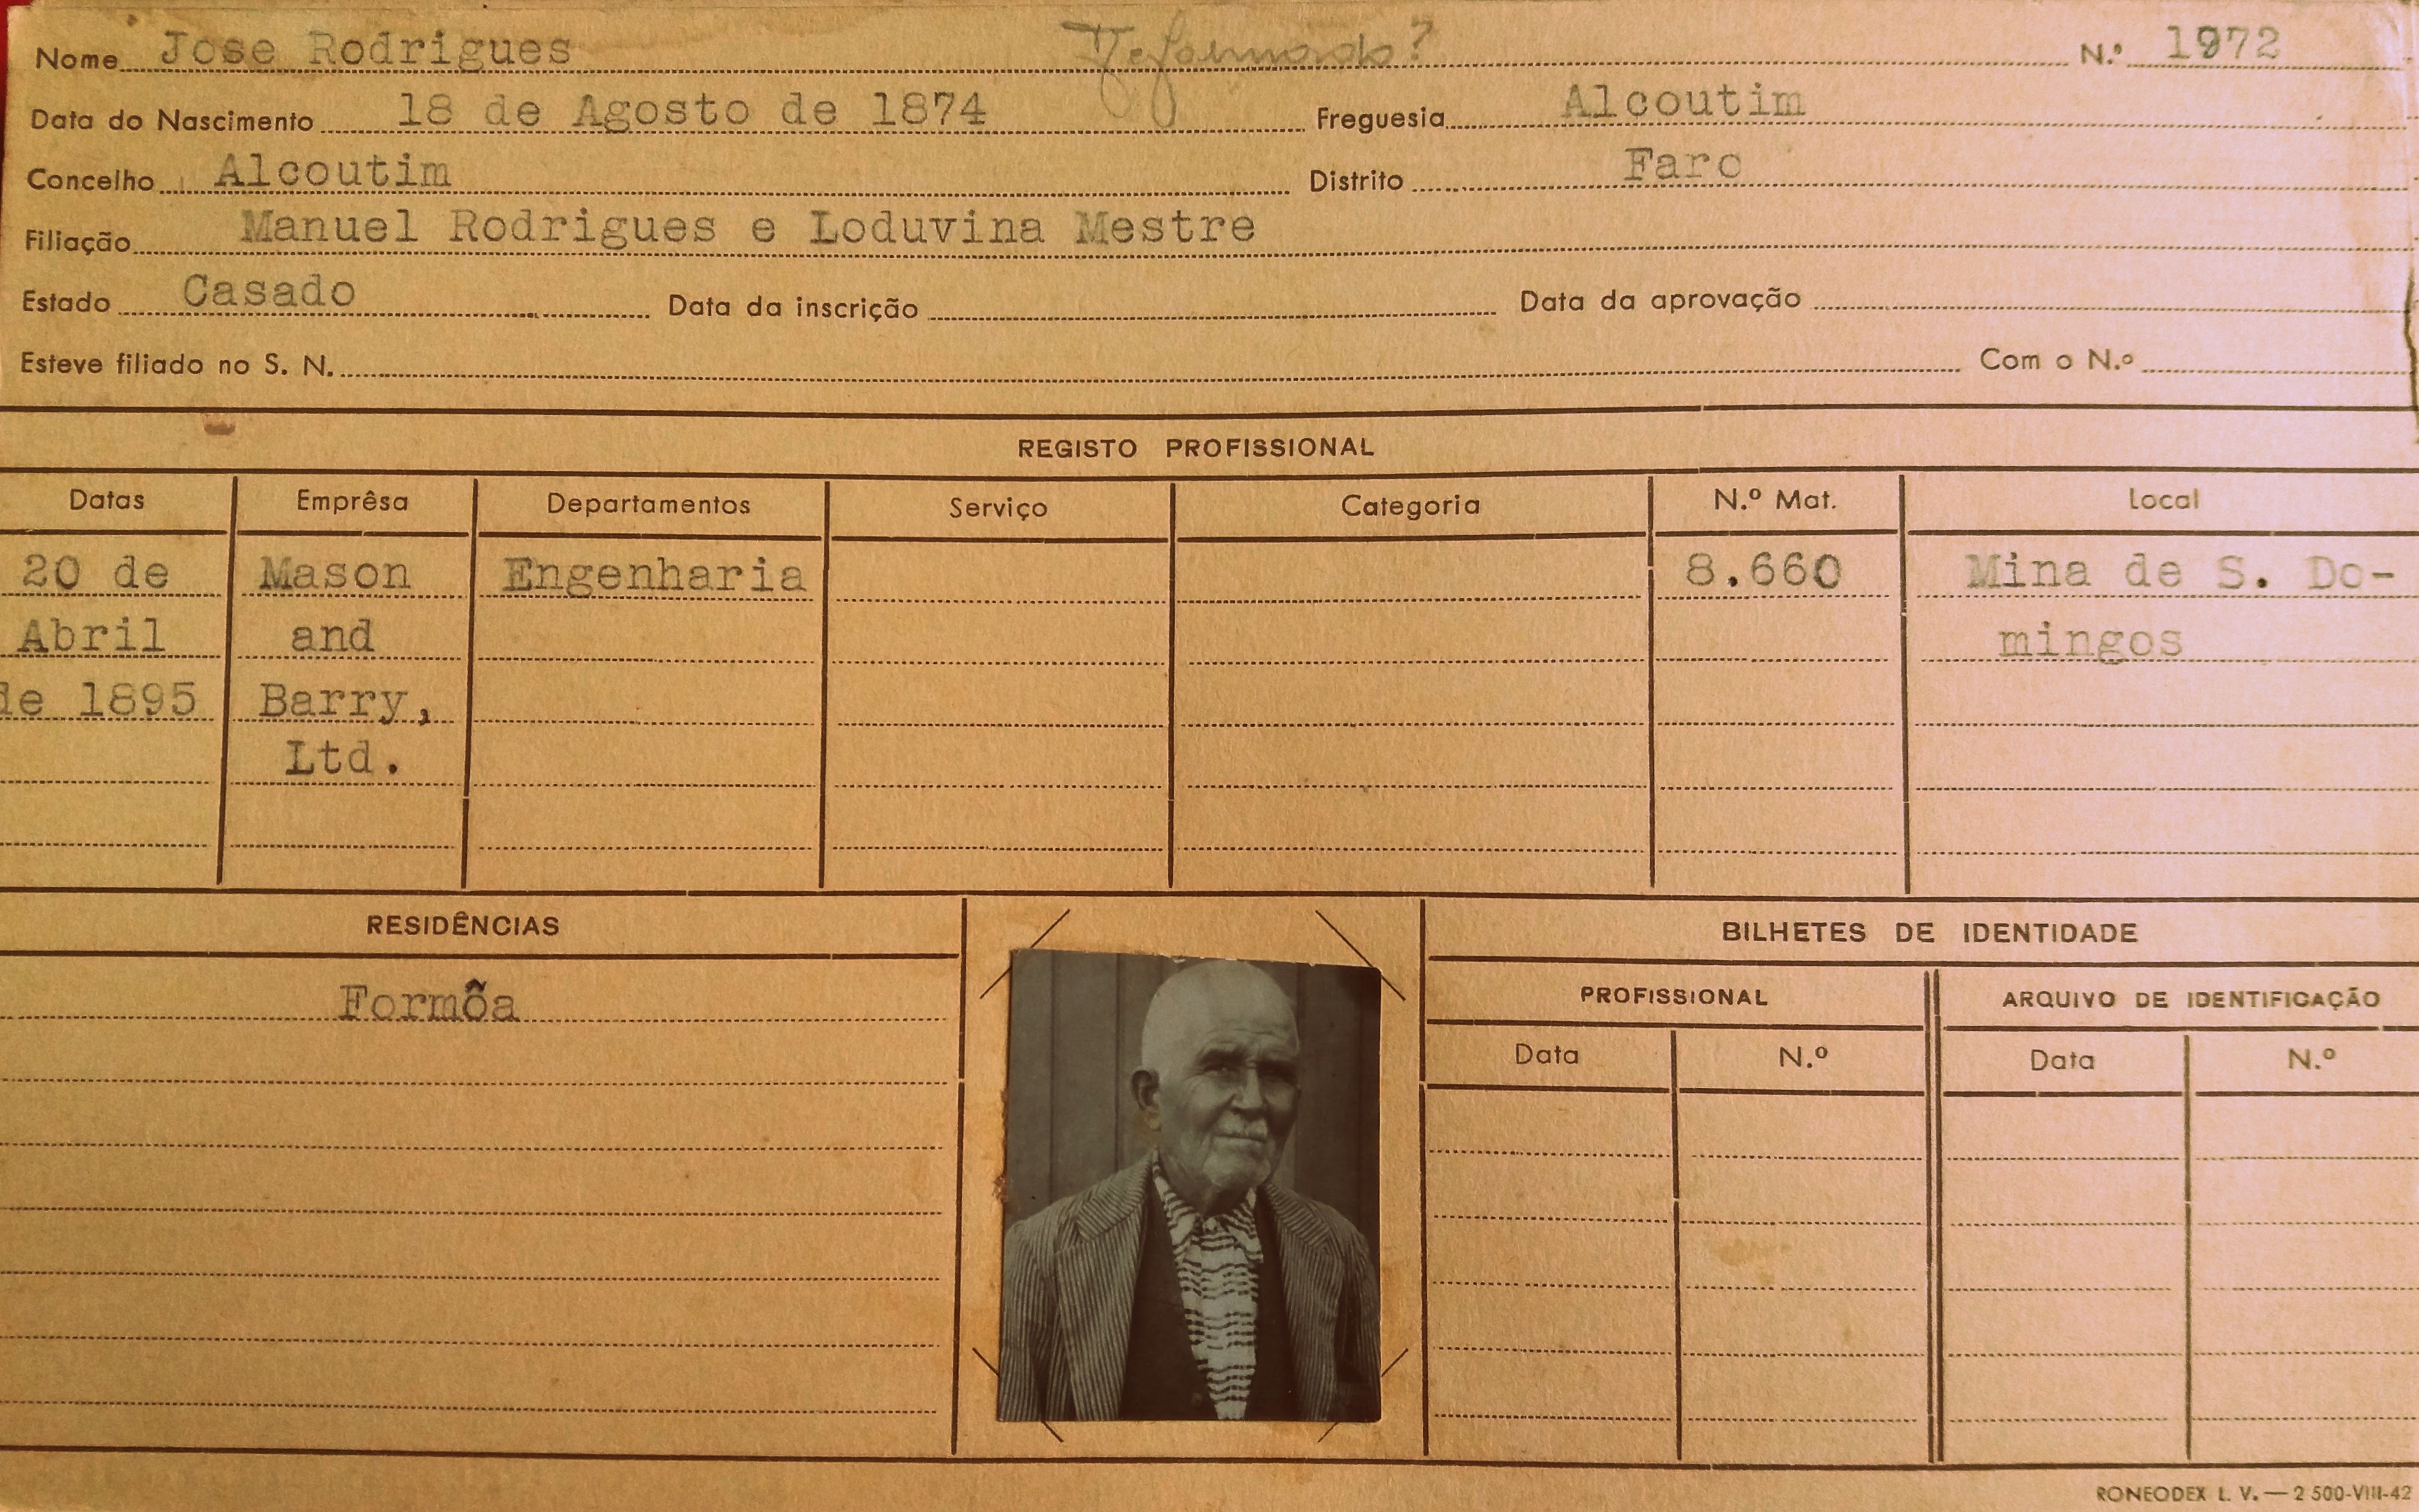 Nome Jose Rodrigues N.º 1972
Data do Nascimento 18 de Agosto de 1874 Freguesia Alcoutim
Concelho Alcoutim Distrito Faro
Filiação Manuel Rodrigues e Loduvina Mestre
Estado Casado Data da inscrição Data da aprovação
Esteve filiado no S. N. Com o N.º
REGISTO PROFISSIONAL
Datas Emprêsa Departamentos Serviço Categoria N.º Mat. Local
20 de Mason Engenharia 8.660 Mina de S. Do-
Abril and mingos
de 1895 Barry,
Ltd.
RESIDÊNCIAS
Formôa
BILHETES DE IDENTIDADE
PROFISSIONAL ARQUIVO DE IDENTIFICAÇÃO
Data N.º Data N.º
RONEODEX L. V. — 2 500-VIII-42